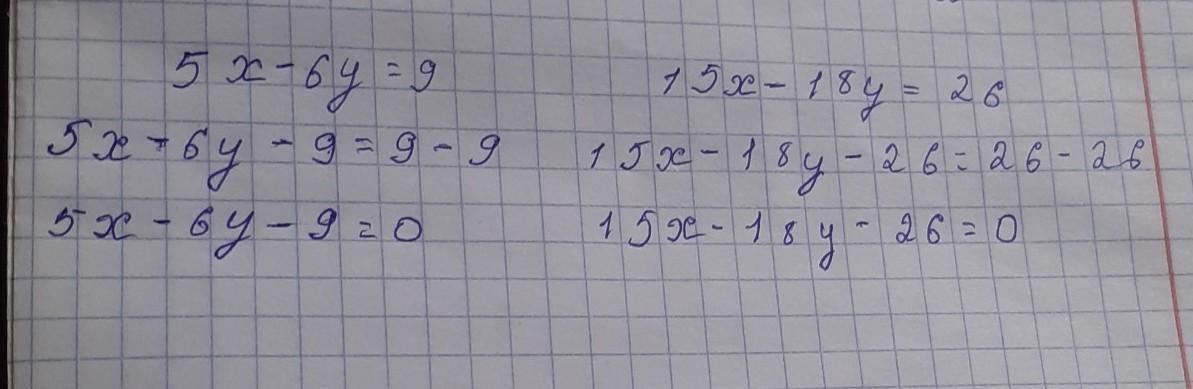 5x - 6y = 9
15x - 18y = 26
5x - 6y - 9 = 9 - 9
15x - 18y - 26 = 26 - 26
5x - 6y - 9 = 0
15x - 18y - 26 = 0